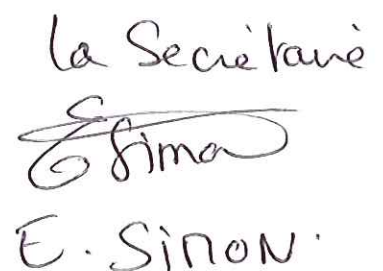 La Secrétaire
ESimon
E. SIMON.